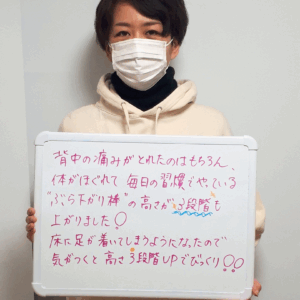 背中の痛みがとれたのはもちろん、
体がほぐれて 毎日の習慣でやっている
"ぶら下がり棒"の高さが 3段階も
上がりました♡
床に足が着いてしまうようになったので
気がつくと高さ3段階UPでびっくり♡♡